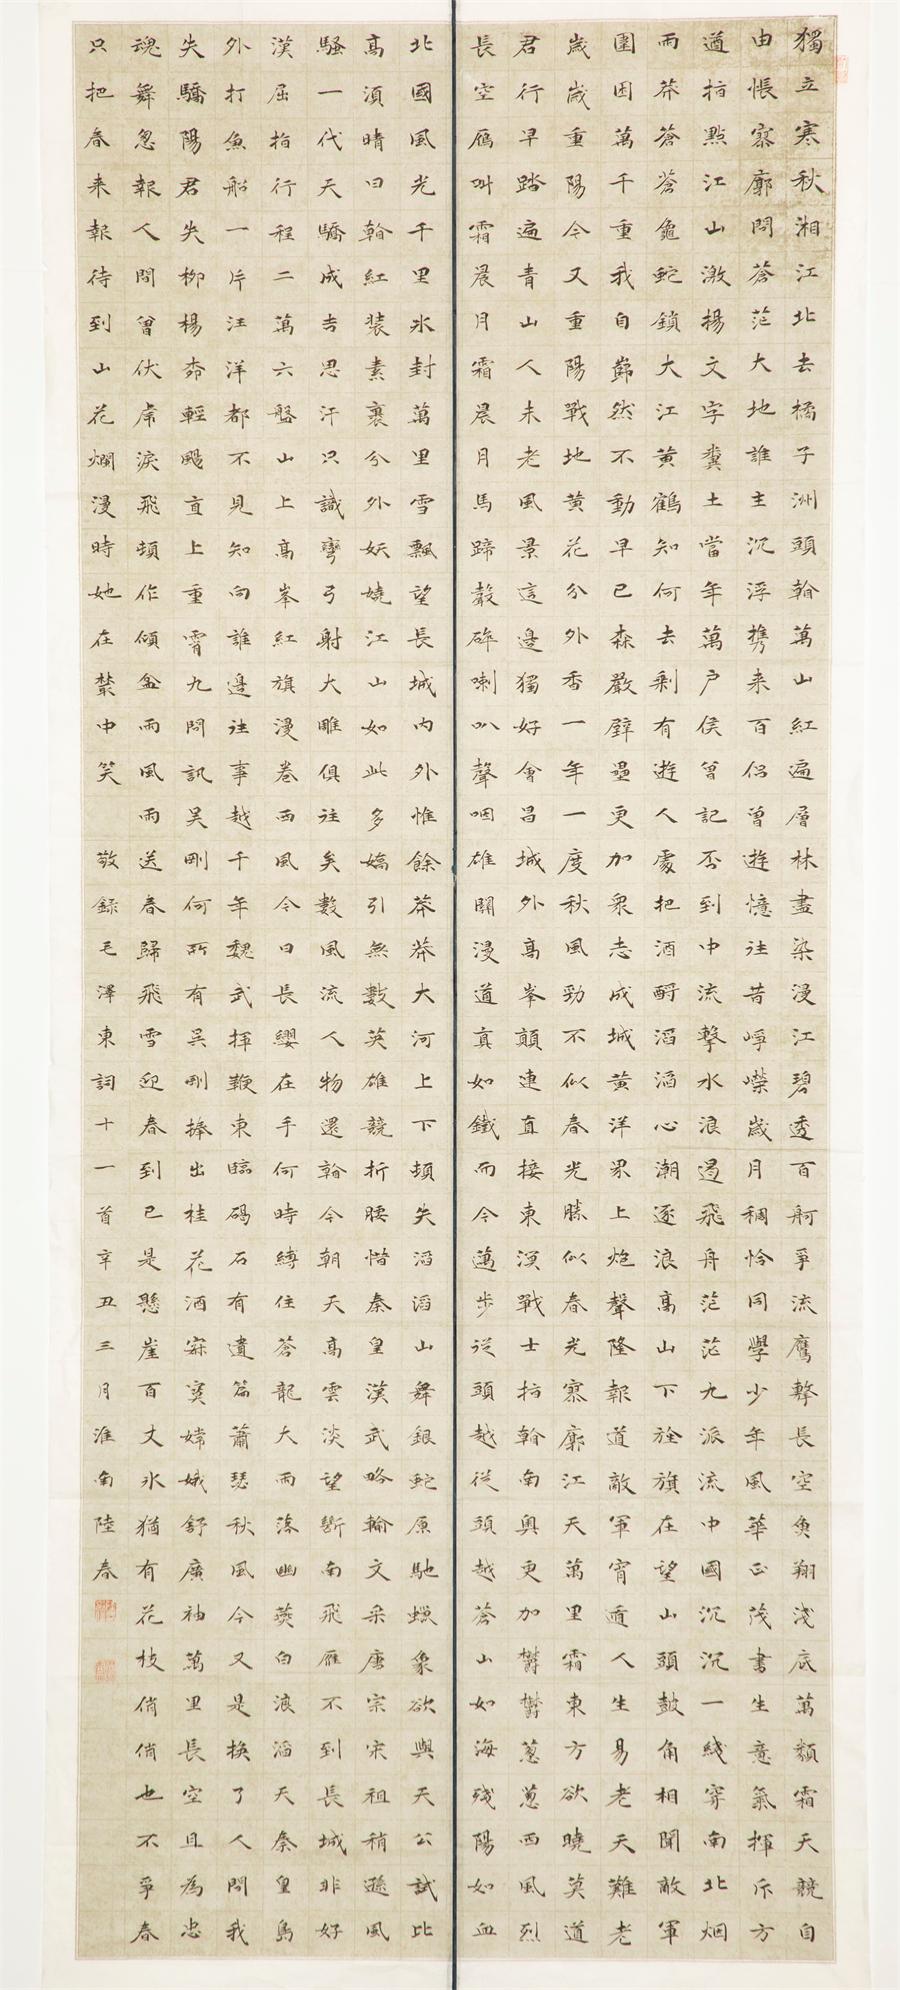 獨立寒秋湘江北去橘子洲頭看萬山紅遍層林盡染漫江碧透百舸爭流鷹擊長空魚翔淺底萬類霜天競自
由悵寥廓問蒼茫大地誰主沉浮攜来百侶曾遊憶往昔崢嶸歲月稠恰同學少年風華正茂書生意氣揮斥方
遒指點江山激揚文字糞土當年萬戶侯曾記否到中流擊水浪遏飛舟茫茫九派流中國沉沉一綫穿南北烟
雨莽蒼蒼龜蛇鎖大江黃鶴知何去剩有遊人處把酒酹滔滔心潮逐浪高山下旌旗在望山頭鼓角相聞敵軍
圍困萬千重我自巋然不動早已森嚴壁壘更加衆志成城黃洋界上炮聲隆報道敵軍宵遁人生易老天難老
歲歲重陽今又重陽戰地黃花分外香一年一度秋風勁不似春光勝似春光寥廓江天萬里霜東方欲曉莫道
君行早踏遍青山人未老風景這邊獨好會昌城外高峯顛連直接東溟戰士指看南奧更加鬱鬱蔥蔥西風烈
長空雁叫霜晨月霜晨月馬蹄聲碎喇叭聲咽雄關漫道真如鐵而今邁步從頭越從頭越蒼山如海殘陽如血
北國風光千里冰封萬里雪飄望長城內外惟餘莽莽大河上下頓失滔滔山舞銀蛇原馳蠟象欲與天公試比
高須晴日看紅裝素裹分外妖嬈江山如此多嬌引無數英雄競折腰惜秦皇漢武略輸文采唐宗宋祖稍遜風
騷一代天驕成吉思汗只識彎弓射大雕俱往矣數風流人物還看今朝天高雲淡望斷南飛雁不到長城非好
漢屈指行程二萬六盤山上高峯紅旗漫卷西風今日長纓在手何時縛住蒼龍大雨落幽燕白浪滔天秦皇島
外打魚船一片汪洋都不見知向誰邊往事越千年魏武揮鞭東臨碣石有遺篇蕭瑟秋風今又是換了人間我
失驕陽君失柳楊柳輕颺直上重霄九問訊吳剛何所有吳剛捧出桂花酒寂寞嫦娥舒廣袖萬里長空且為忠
魂舞忽報人間曾伏虎淚飛頓作傾盆雨風雨送春歸飛雪迎春到已是懸崖百丈冰猶有花枝俏俏也不爭春
只把春来報待到山花爛漫時她在叢中笑 敬錄毛澤東詞十一首辛丑三月淮南陸春